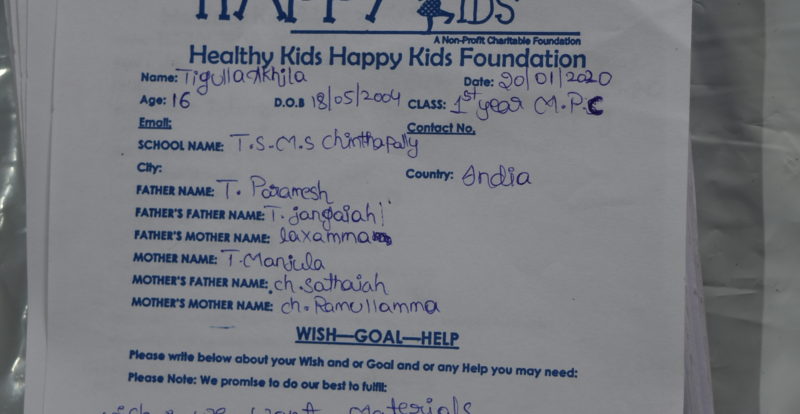 HAPPY KIDS
A Non-Profit Charitable Foundation
Healthy Kids Happy Kids Foundation
Name: Tigulla Akhila Date: 20/01/2020
Age: 16 D.O.B 18/05/2004 CLASS: 1st year M.P.C
Email: Contact No.
SCHOOL NAME: T.S.M.S Chinthapally
City: Country: India
FATHER NAME: T. Paramesh
FATHER'S FATHER NAME: T. jangaiah
FATHER'S MOTHER NAME: laxamma
MOTHER NAME: T. Manjula
MOTHER'S FATHER NAME: ch. Sathaiah
MOTHER'S MOTHER NAME: ch. Ramullamma
WISH—GOAL—HELP
Please write below about your Wish and or Goal and or any Help you may need:
Please Note: We promise to do our best to fulfill:
want materials